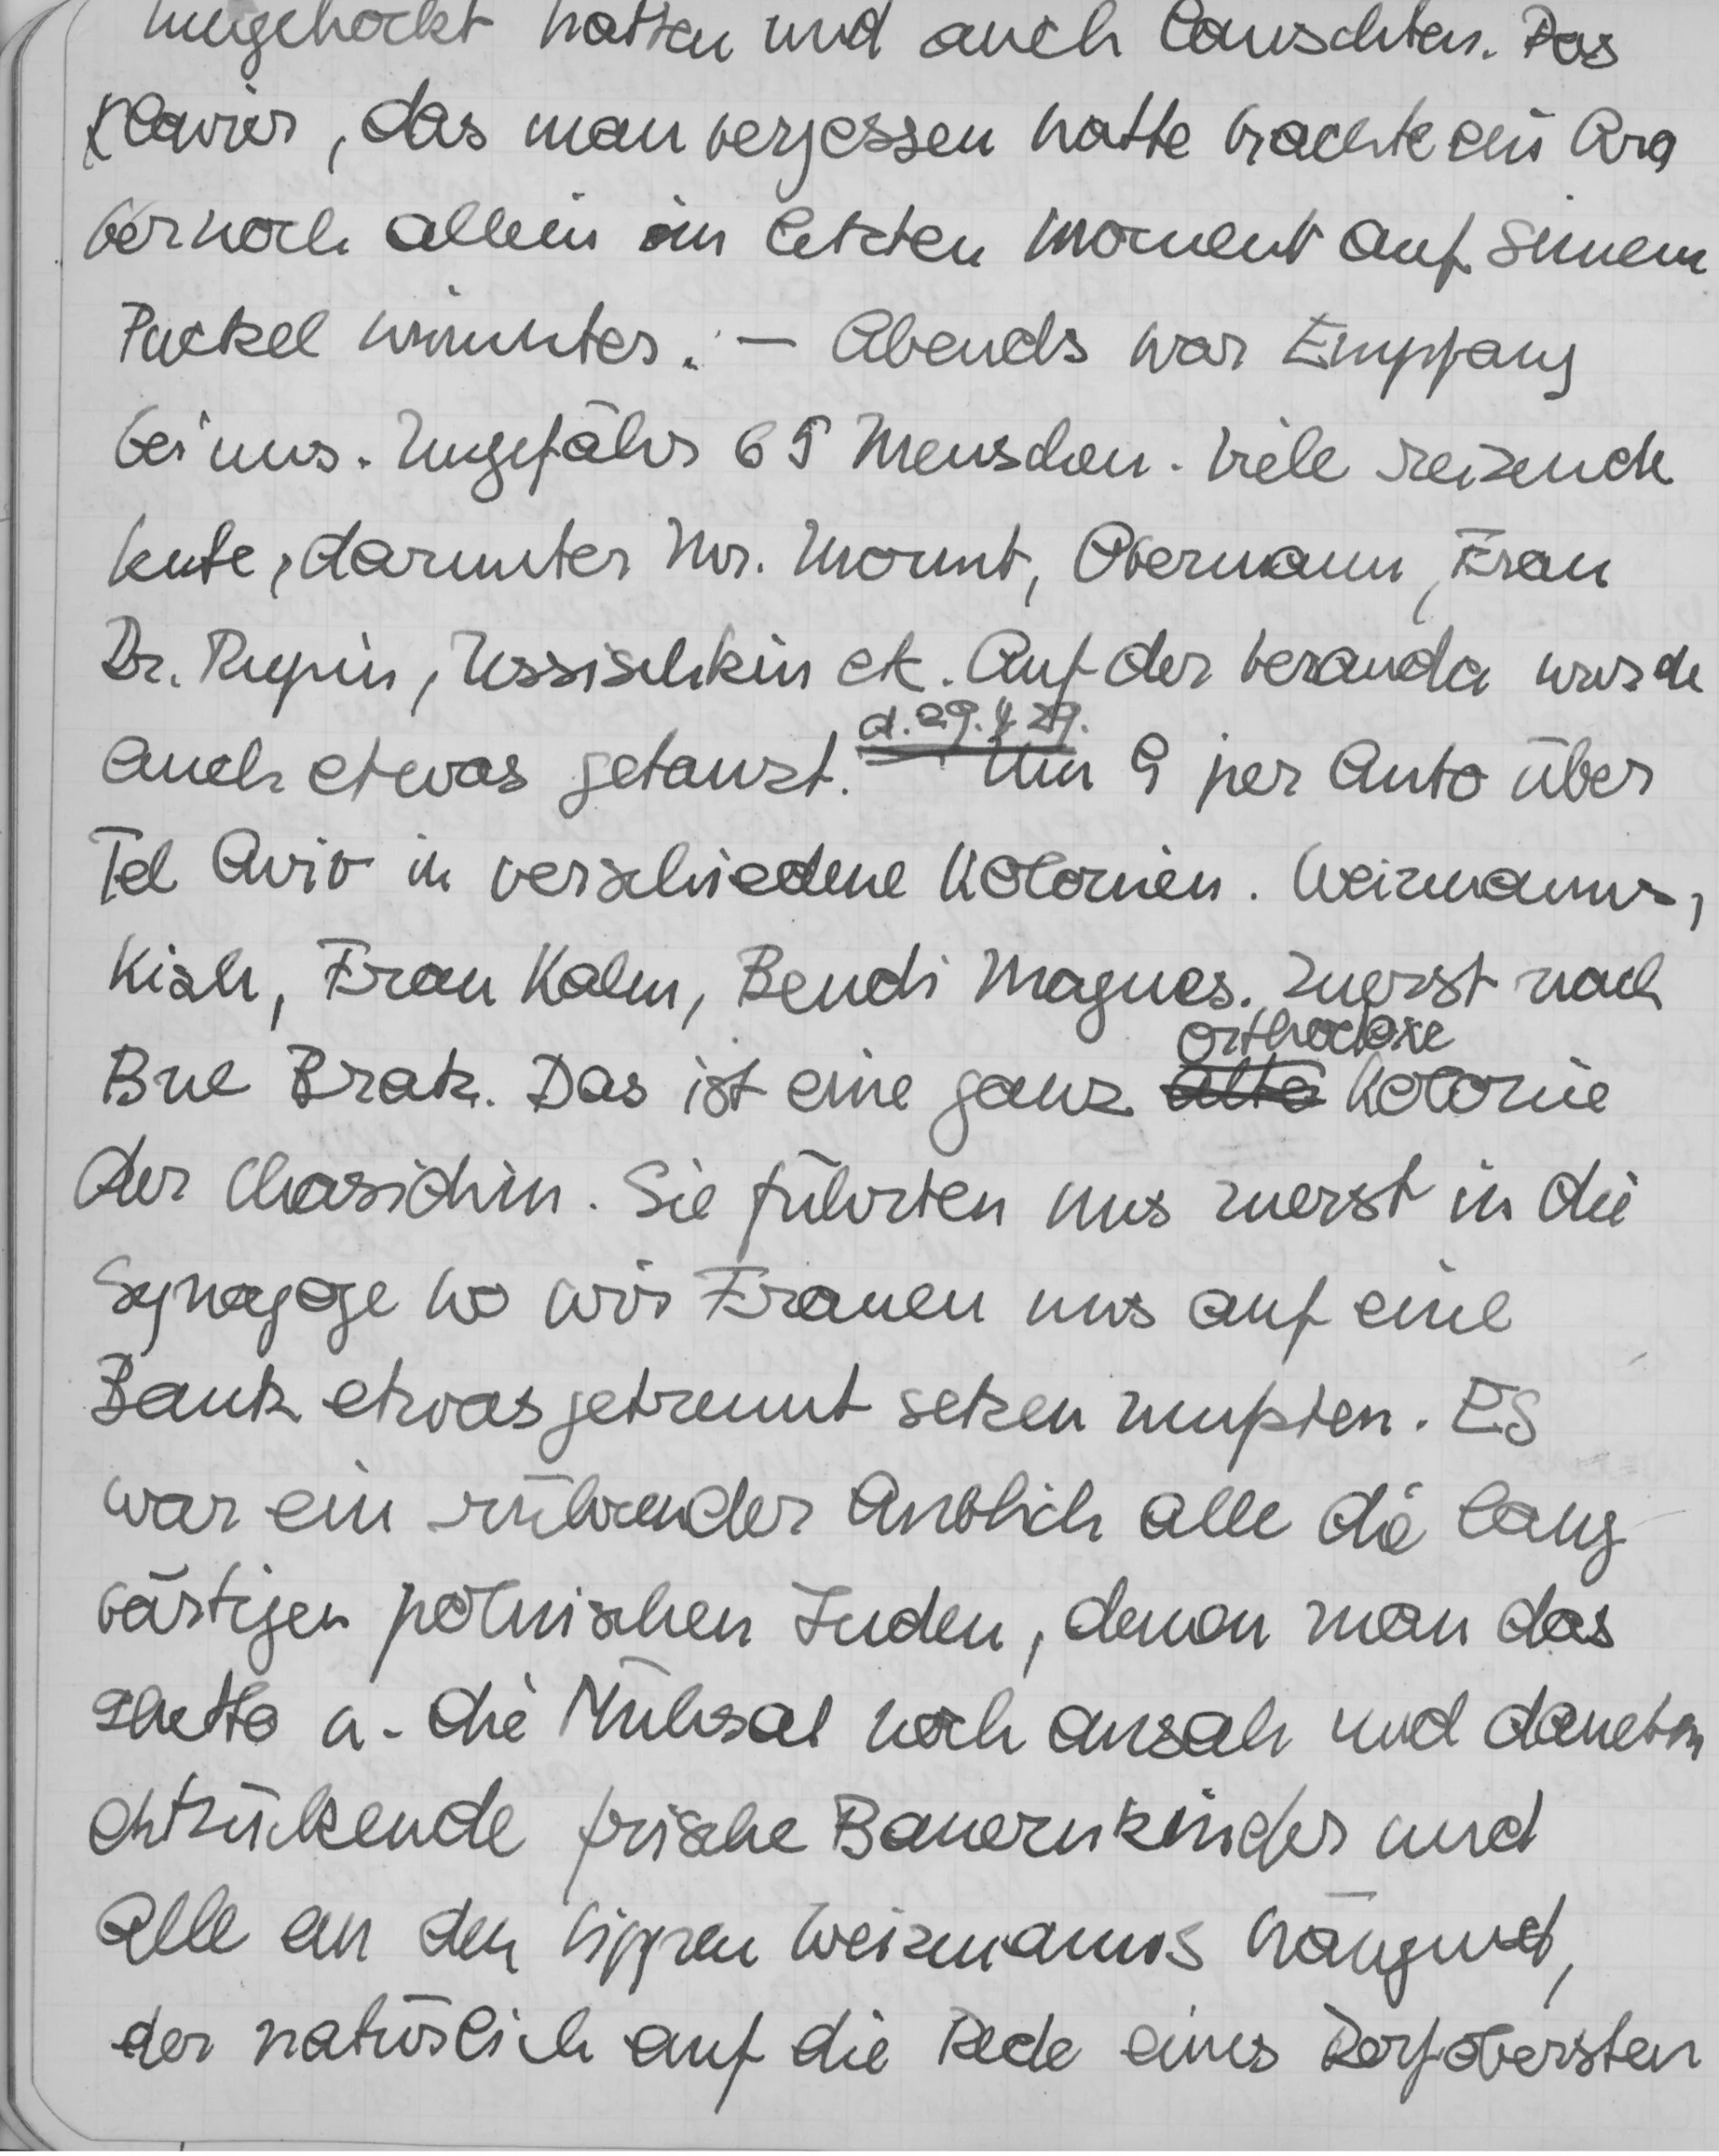 hingehockt hatten und auch lauschten. Das
Klavier, das man vergessen hatte brachte ein Ara
ber noch allein im letzten Moment auf seinem
Puckel hinunter. — Abends war Empfang
bei uns. Ungefähr 65 Menschen. Viele reizende
Leute, darunter Mr. Mount, Obermann, Frau
Dr. Rupin, Ussischkin etc. Auf der Veranda wurde
auch etwas getanzt. d. 29. 4 29. Um 9 per Auto über
Tel Aviv in verschiedene Kolonien. Weizmanns,
Kish, Frau Kahn, Bendi Magnes. Zuerst nach
Bne Brak. Das ist eine ganz alte orthodoxe Kolonie
der Chassidim. Sie führten uns zuerst in die
Synagoge wo wir Frauen uns auf eine
Bank etwas getrennt setzen mußten. Es
war ein rührender Anblick alle die lang
bärtigen polnischen Juden, denen man das
Ghetto u. die Mühsal noch ansah und daneben
entzückende frische Bauernkinder und
alle an den Lippen Weizmanns hängend,
der natürlich auf die Rede eines Dorfobersten